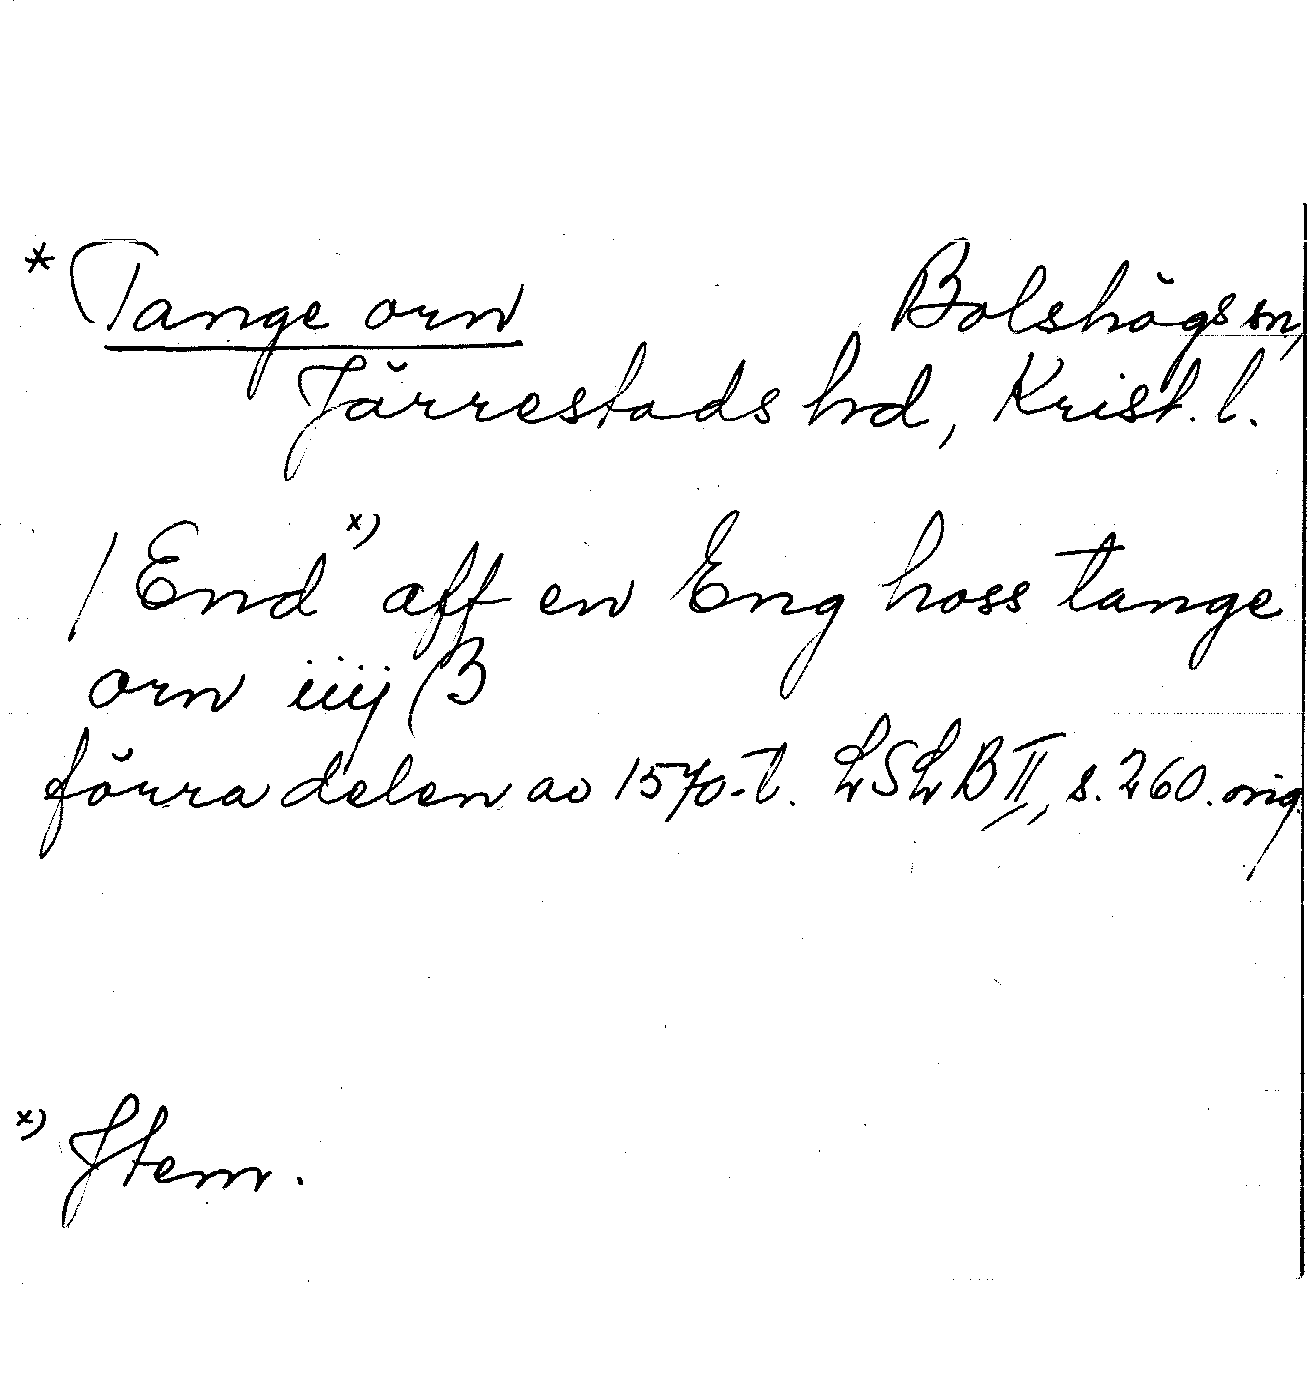 * Tange orn Bolshögs sn,
Järrestads hd, Krist. l.
/ End x) aff en Eng hoss tange
orn iiij β
förra delen av 1570-t. LSLB II, s. 260. orig.
x) Item.